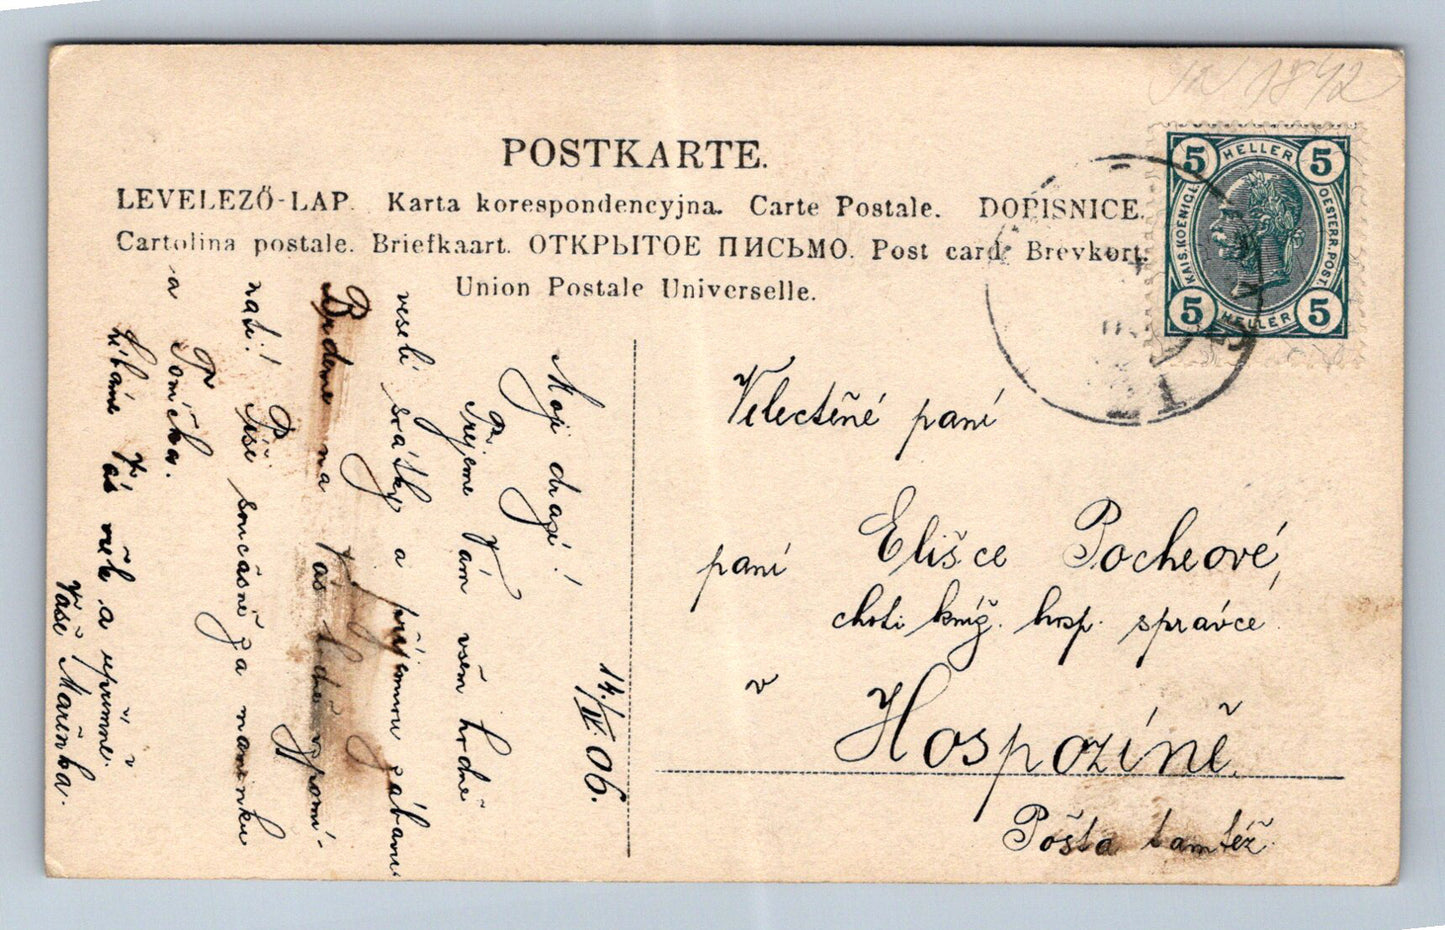 W 1842
POSTKARTE.
LEVELEZŐ-LAP. Karta korespondencyjna. Carte Postale. DOPISNICE.
Cartolina postale. Briefkaart. ОТКРЫТОЕ ПИСЬМО. Post card. Brevkort.
Union Postale Universelle.
5 HELLER 5
KAIS. KOENIGL. OESTERR. POST.
5 HELLER 5
14./IV. 06.
Moji drazí!
Přejeme Vám všem hodně
veselé svátky a příjemnou zábavu
Budeme na Vás hodně vzpomí-
nati! Píši současně za maminku
a Tomíčka.
Líbáme Vás vřele a upřímně.
Vaše Mařenka.
Velectěné paní
paní Elišce Pocheové,
choti kníž. hosp. správce
v Hospozíně.
Pošta tamtéž.